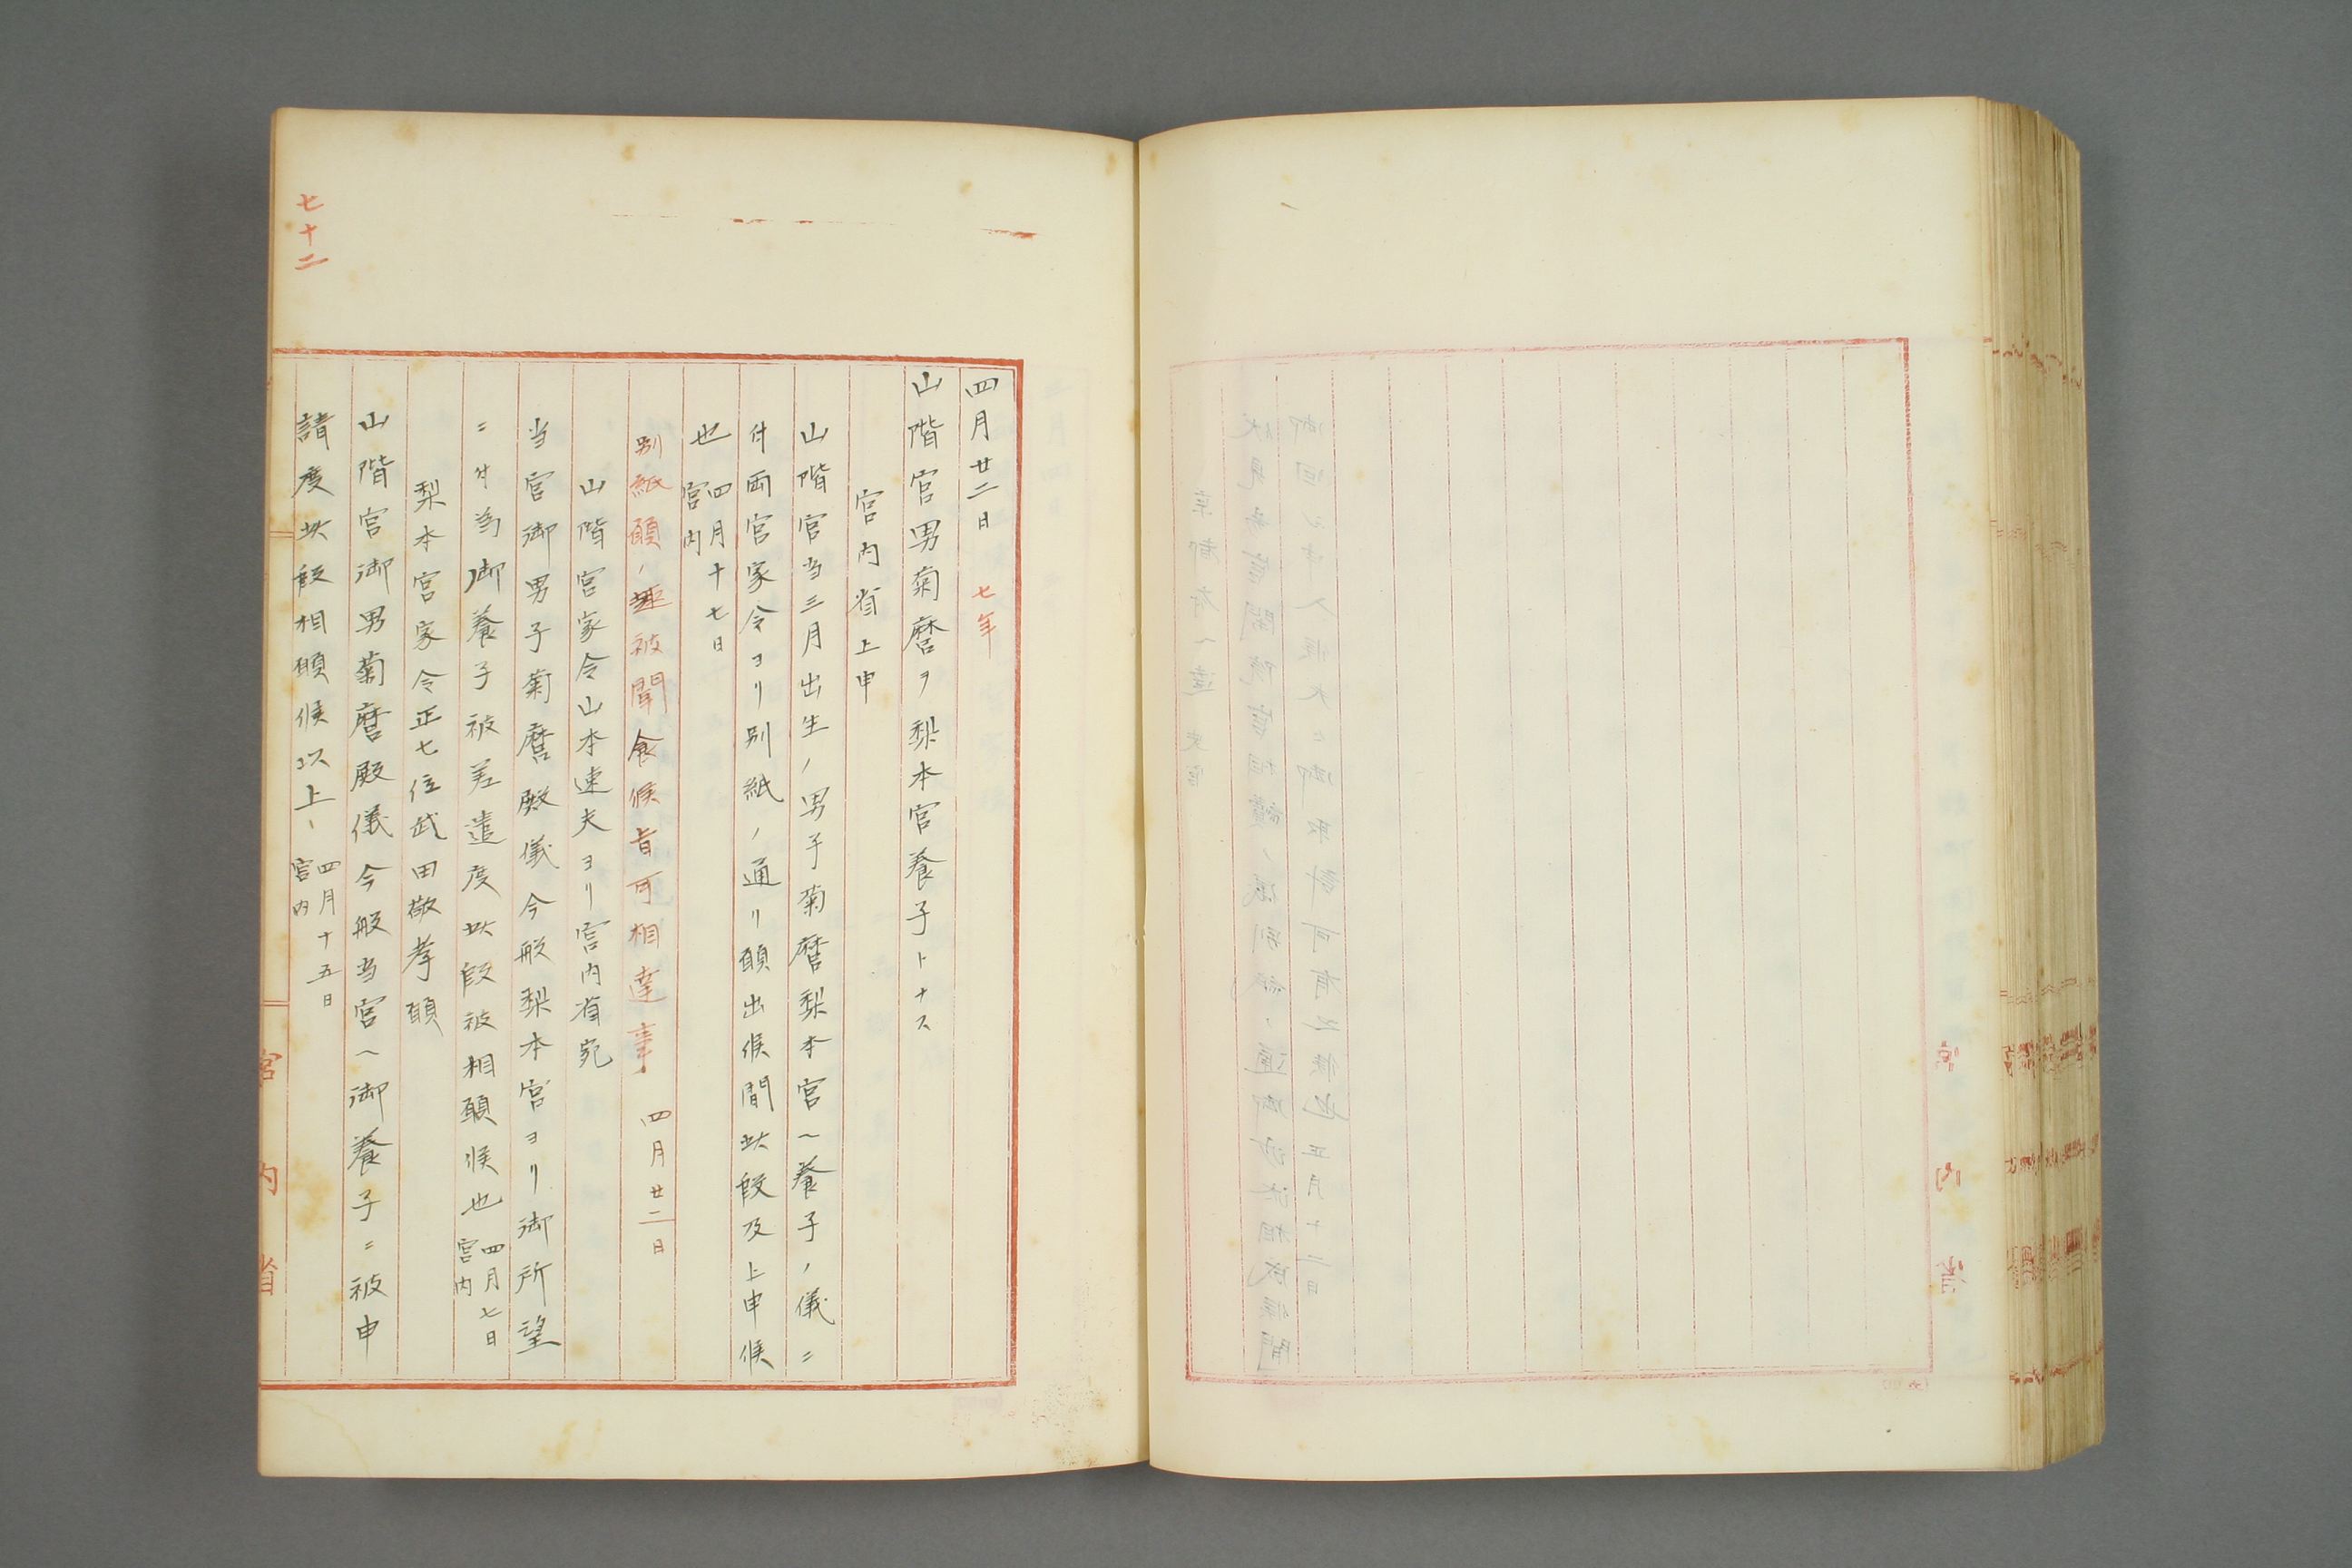 七十二
四月廿二日 七年
山階宮男菊麿ヲ梨本宮養子トナス
宮内省上申
山階宮当三月出生ノ男子菊麿梨本宮ヘ養子ノ儀ニ
付両宮家令ヨリ別紙ノ通リ願出候間此段及上申候
也 四月十七日 宮内
別紙願ノ趣被聞食候旨可相達事 四月廿二日
山階宮家令山本速夫ヨリ宮内省宛
当宮御男子菊麿殿儀今般梨本宮ヨリ御所望
ニ付為御養子被差遣度此段被相願候也 四月七日 宮内
梨本宮家令正七位武田敬孝願
山階宮御男菊麿殿儀今般当宮ヘ御養子ニ被申
請度此段相願候以上、 四月十五日 宮内
宮内省